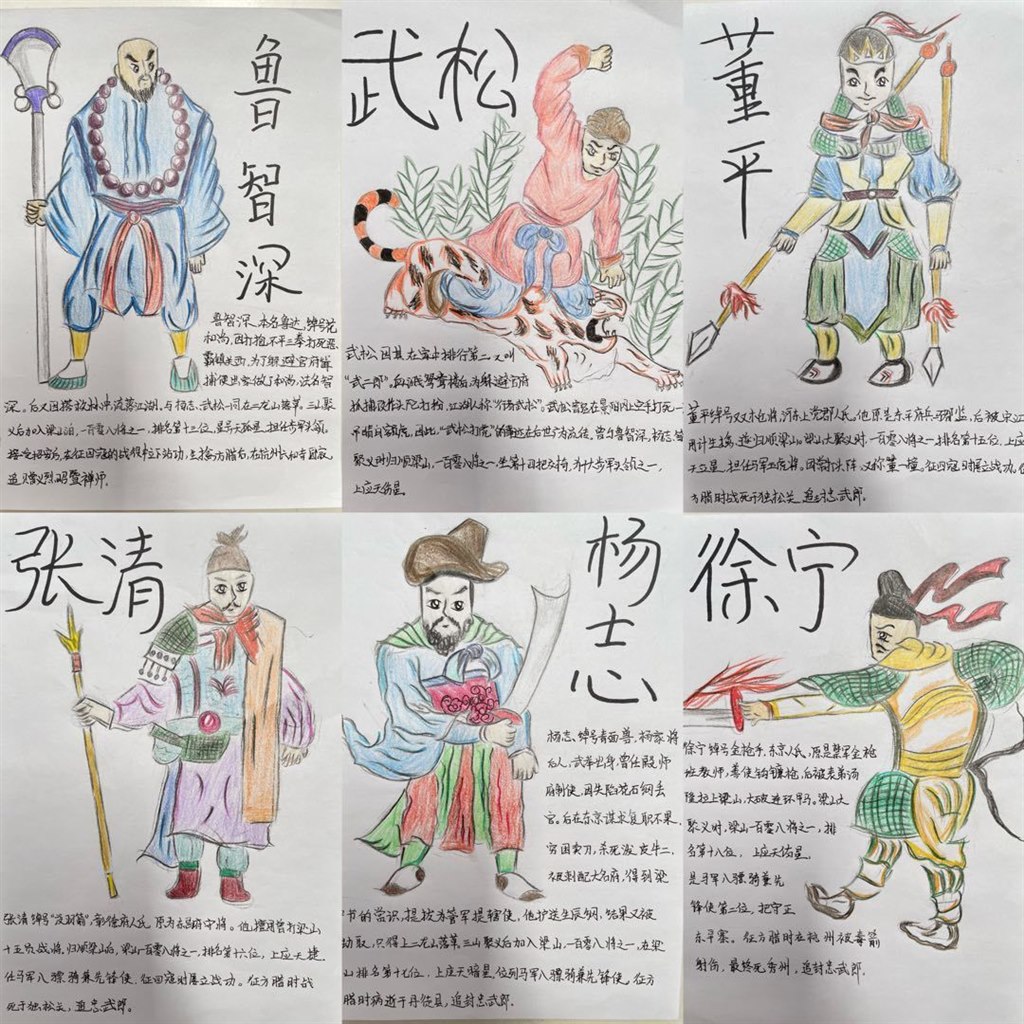 鲁智深
鲁智深,本名鲁达,绰号花
和尚,因打抱不平三拳打死恶
霸镇关西,为了躲避官府缉
捕便出家做了和尚,法名智
深。后又因搭救林冲流落江湖,与杨志、武松一同在二龙山落草。三山聚
义后加入梁山泊,一百零八将之一,排名第十三位,星号天孤星,担任步军头领。
接受招安后,在征四寇的战役中立下功,生擒方腊后,在杭州六和寺圆寂,
追赠义烈昭暨禅师。
武松
武松因其在家中排行第二又叫
“武二郎”,血溅鸳鸯楼后,为躲避官府
抓捕改作头陀打扮,江湖人称“行者武松”。武松曾在景阳冈上空手打死一
只吊睛白额虎,因此,“武松打虎”的事迹在后世广为流传,曾与鲁智深、杨志
聚义时归顺梁山,一百零八将之一,坐第十四把交椅,为十步军头领之一,
上应天伤星。
董平
董平绰号双枪将,河东上党郡人氏,他原是东平府兵马都监,后被宋江
用计生擒,遂归顺梁山。梁山大聚义时,一百零八将之一,排名第十五位,上应
天立星,担任马军五虎将,因常打头阵,又称董一撞,征四寇时屡立战功。
方腊时战死于独松关,追封忠武郎。
张清
张清绰号“没羽箭”,彰德府人氏,原为东昌府守将。他用石曾打梁山
十五员战将,归顺梁山后,梁山一百零八将之一,排名第十六位,上应天捷
任马军八骠骑兼先锋使,征四寇时屡立战功。征方腊时战
死于独松关,追忠武郎。
杨志
杨志,绰号青面兽,杨家将
后人,武举出身,曾任殿帅
府制使,因失陷花石纲丢
官。后在东京谋求复职不果,
穷困卖刀,杀死泼皮牛二,
被刺配大名府,得到梁
中书的赏识,提拔为管军提辖使,他护送生辰纲,结果又被
劫取,只得上二龙山落草,三山聚义后加入梁山,一百零八将之一,在梁
山排名第十七位,上应天暗星,位列马军八骠骑兼先锋使。征方
腊时病逝于丹徒县,追封忠武郎。
徐宁
徐宁绰号金枪手,东京人氏,原是禁军金枪
班教师,善使钩镰枪,后被表弟汤
隆拉上梁山,大破连环甲马。梁山大
聚义时,梁山一百零八将之一,排
名第十八位,上应天佑星,
是马军八骠骑兼先
锋使第二位,把守正
东平寨。征方腊时在杭州被毒箭
射伤,最终死秀州,追封忠武郎。